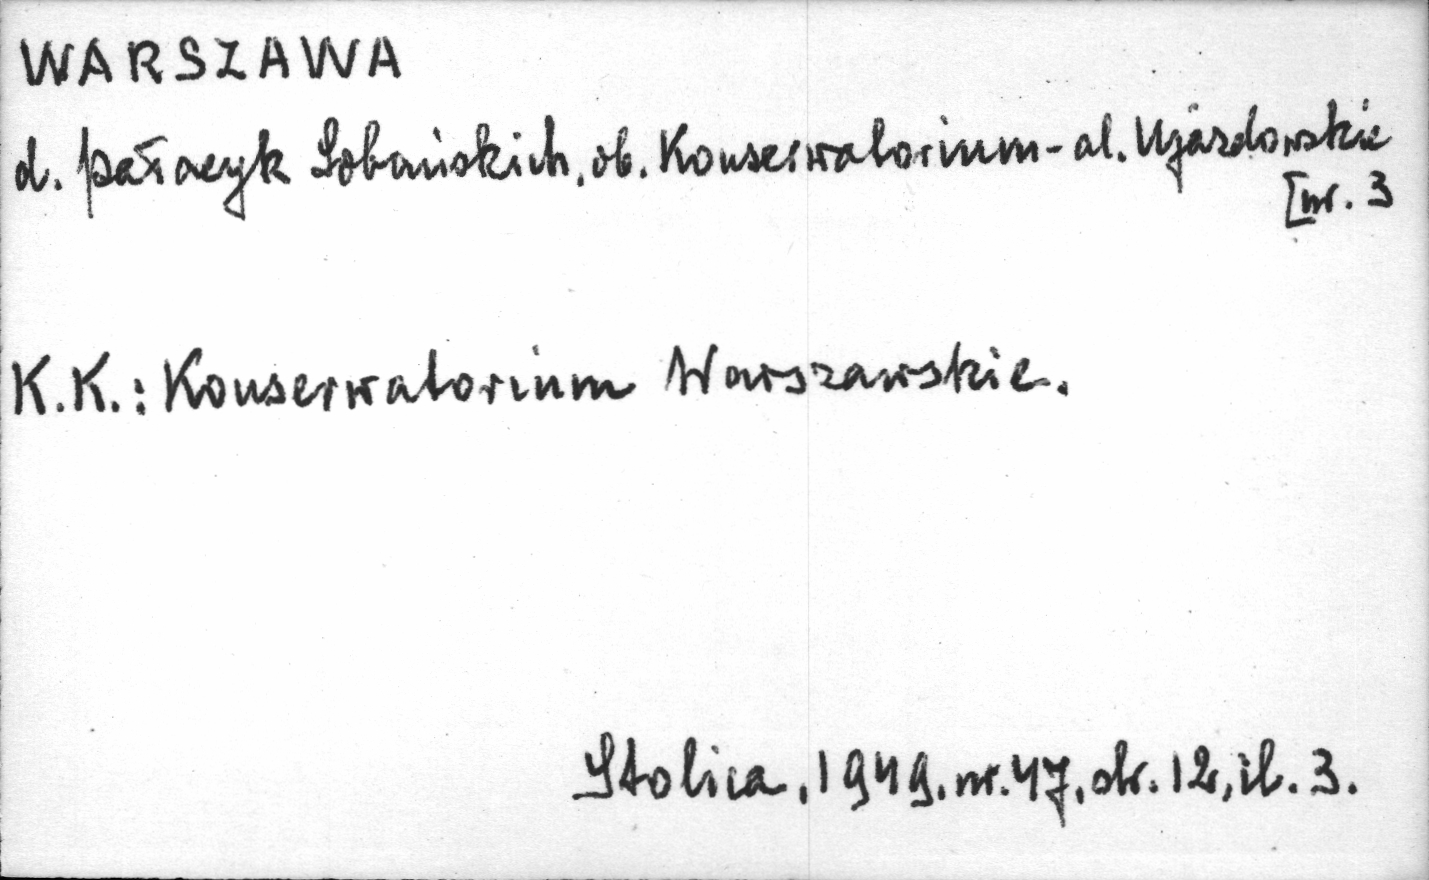 WARSZAWA
d. pałacyk Sobańskich, ob. Konserwatorium - al. Ujazdowskie
[nr. 3
K.K.: Konserwatorium Warszawskie.
Stolica, 1949, nr. 47, str. 12, il. 3.